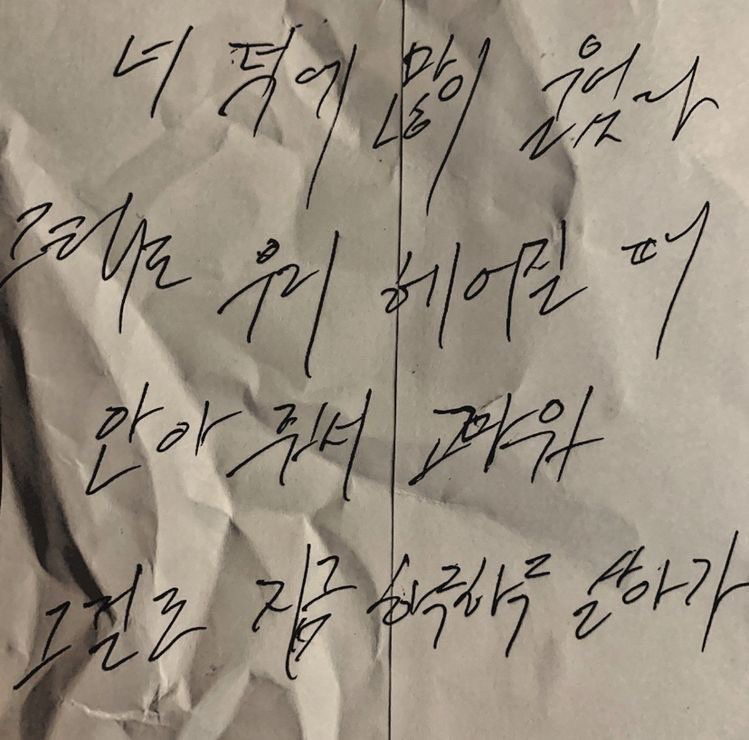 너 덕에 많이 웃었다
그래도 우리 헤어질 때
안아 줘서 고마워
그걸로 지금 하루하루 살아가